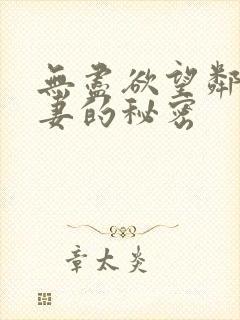 無盡欲望鄰
妻的秘密
章太炎